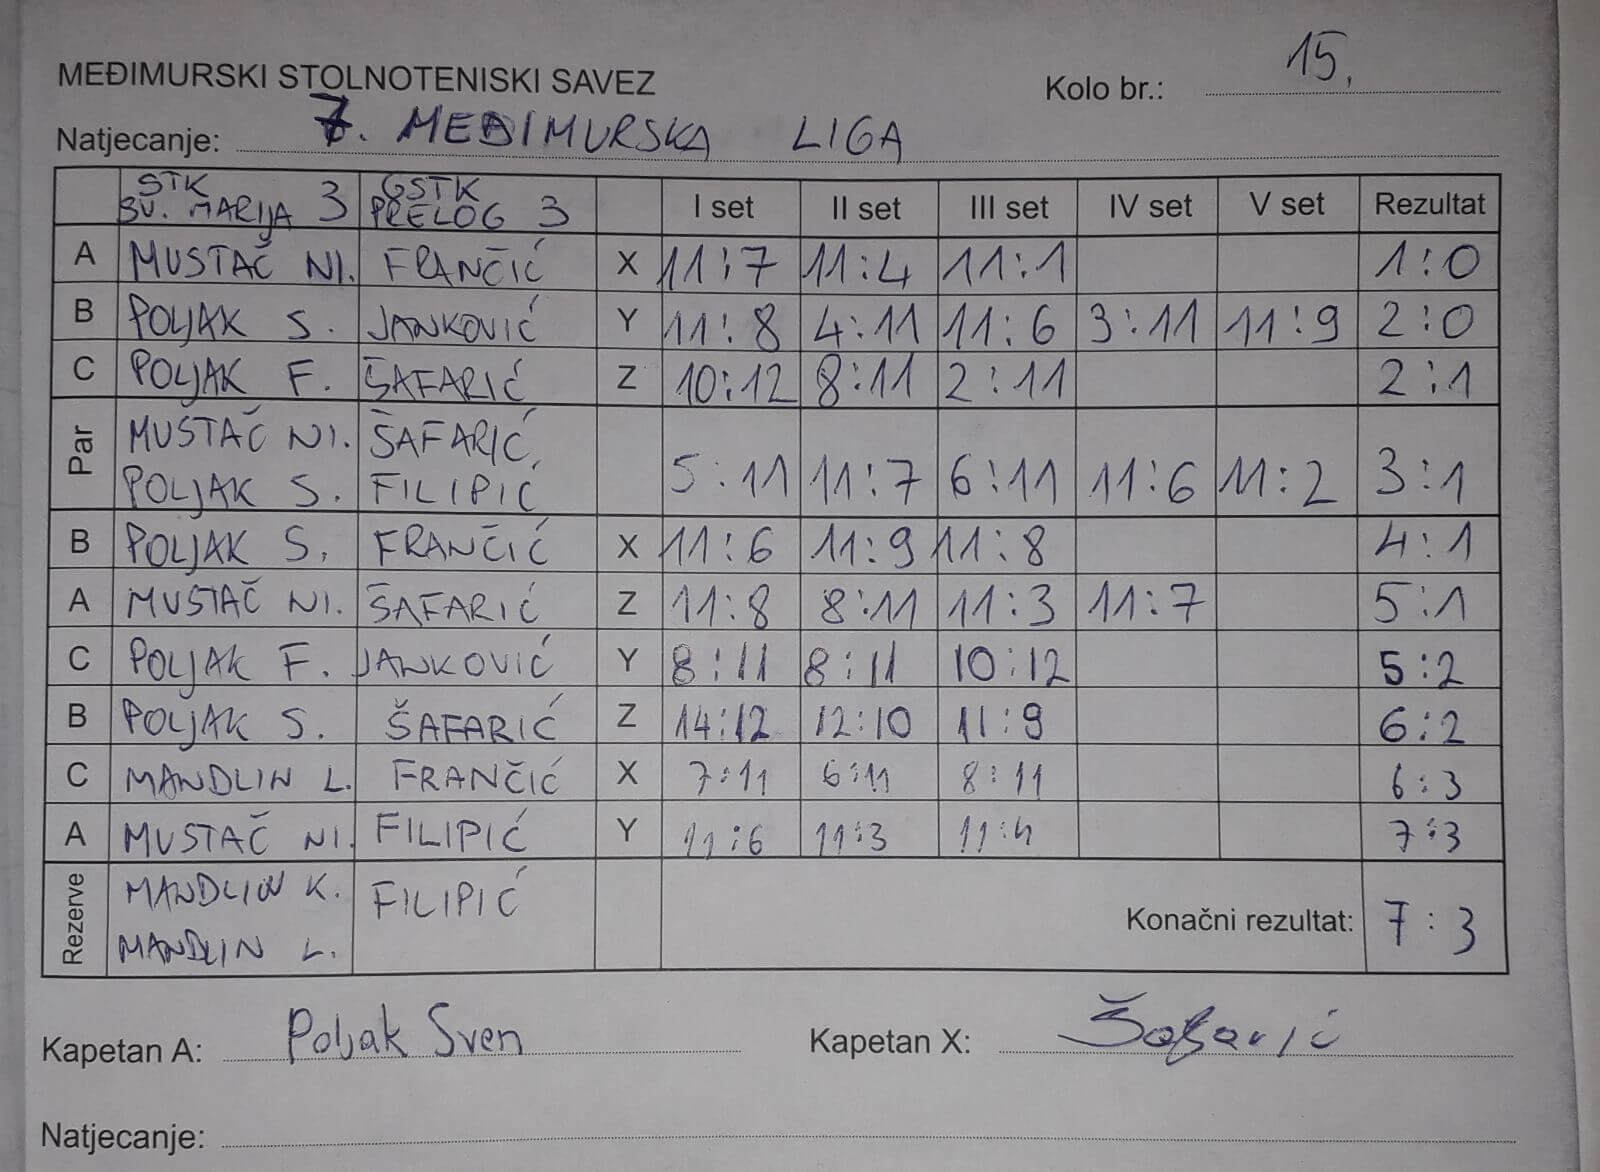 MEĐIMURSKI STOLNOTENISKI SAVEZ Kolo br.: 15.
Natjecanje: 7. MEĐIMURSKA LIGA
STK SV. MARIJA 3 GSTK PRELOG 3 I set II set III set IV set V set Rezultat
A MUSTAČ NI. FRANČIĆ X 11:7 11:4 11:1 1:0
B POLJAK S. JANKOVIĆ Y 11:8 4:11 11:6 3:11 11:9 2:0
C POLJAK F. ŠAFARIĆ Z 10:12 8:11 2:11 2:1
Par MUSTAČ NI. ŠAFARIĆ,
POLJAK S. FILIPIĆ 5:11 11:7 6:11 11:6 11:2 3:1
B POLJAK S. FRANČIĆ X 11:6 11:9 11:8 4:1
A MUSTAČ NI. ŠAFARIĆ Z 11:8 8:11 11:3 11:7 5:1
C POLJAK F. JANKOVIĆ Y 8:11 8:11 10:12 5:2
B POLJAK S. ŠAFARIĆ Z 14:12 12:10 11:9 6:2
C MANDLIN L. FRANČIĆ X 7:11 6:11 8:11 6:3
A MUSTAČ NI. FILIPIĆ Y 11:6 11:3 11:4 7:3
Rezerve MANDLIN K. FILIPIĆ Konačni rezultat: 7:3
MANDLIN L.
Kapetan A: Poljak Sven Kapetan X: Šafarić
Natjecanje: